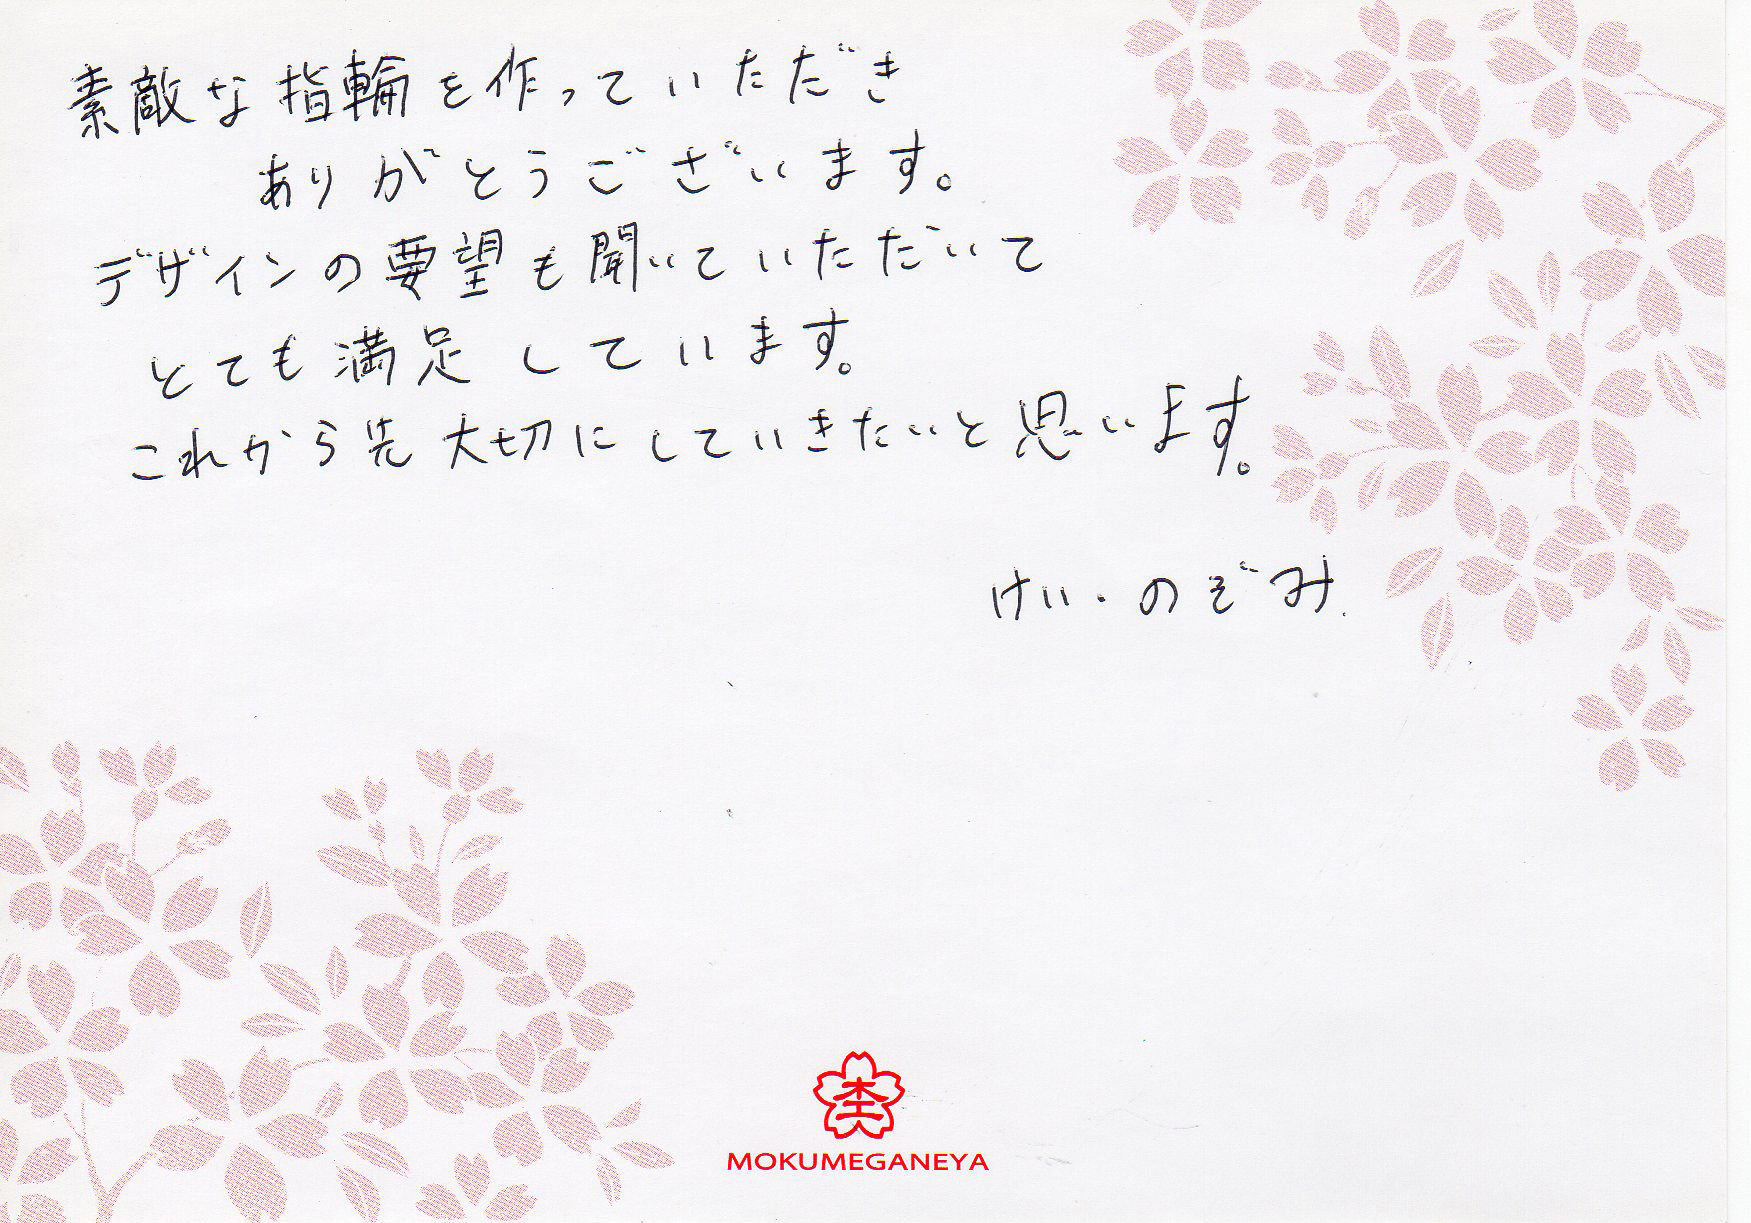 素敵な指輪を作っていただき
ありがとうございます。
デザインの要望も聞いていただいて
とても満足しています。
これから先大切にしていきたいと思います。
けい・のぞみ.
杢
MOKUMEGANEYA